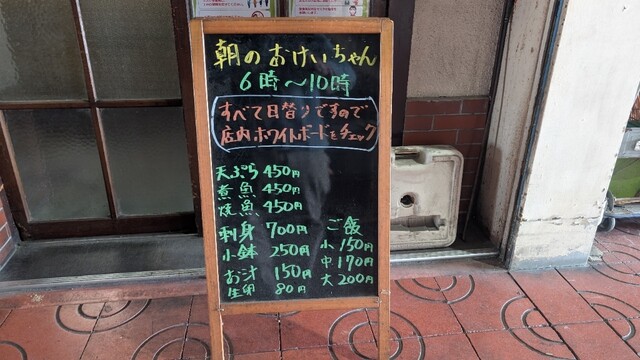 朝のおけいちゃん
6時～10時
すべて日替りですので
店内ホワイトボードをチェック
天ぷら 450円
煮魚 450円
焼魚 450円
刺身 700円
小鉢 250円
お汁 150円
生卵 80円
ご飯
小 150円
中 170円
大 200円